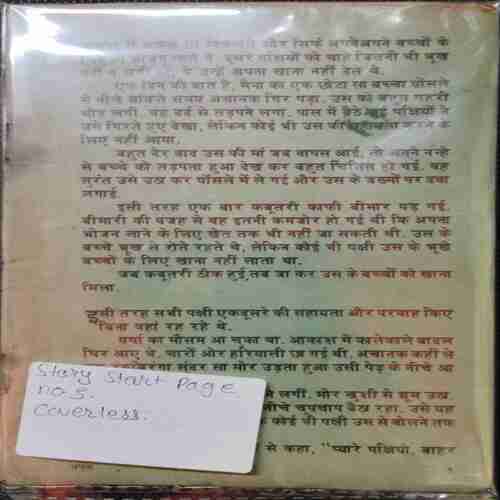 और सिर्फ अपनेअपने बच्चों के
एक दिन की बात है, मैना का एक छोटा सा बच्चा घोंसले
से नीचे झांकते समय अचानक गिर पड़ा. उस को बहुत गहरी
चोट लगी. वह दर्द से तड़पने लगा. पास में बैठे कई पक्षियों ने
उसे गिरते हुए देखा, लेकिन कोई भी उस की सहायता करने के
लिए नहीं आया.
बहुत देर बाद उस की मां जब वापस आई, तो अपने नन्हे
से बच्चे को तड़पता हुआ देख कर बहुत चिंतित हो गई. वह
तुरंत उसे उठा कर घोंसले में ले गई और उस के जख्मों पर दवा
लगाई.
इसी तरह एक बार कबूतरी काफी बीमार पड़ गई.
बीमारी की वजह से वह इतनी कमजोर हो गई थी कि अपना
भोजन लाने के लिए खेत तक भी नहीं जा सकती थी. उस के
बच्चे भूख से रोते रहते थे, लेकिन कोई भी पक्षी उस के भूखे
बच्चों के लिए खाना नहीं लाता था.
जब कबूतरी ठीक हुई, तब जा कर उस के बच्चों को खाना
मिला.
इसी तरह सभी पक्षी एकदूसरे की सहायता और परवाह किए
बिना वहां रह रहे थे.
वर्षा का मौसम आ चुका था. आकाश में कालेकाले बादल
घिर आए थे. चारों ओर हरियाली छा गई थी. अचानक कहीं से
सुंदर सा मोर उड़ता हुआ उसी पेड़ के नीचे आ
लगीं. मोर खुशी से झूम उठा.
नीचे चुपचाप बैठा रहा. उसे यह
कोई भी पक्षी उस से बोलने तक
से कहा, "प्यारे पक्षियो, बाहर
चंपक
Story Start Page
no 5.
Coverless.